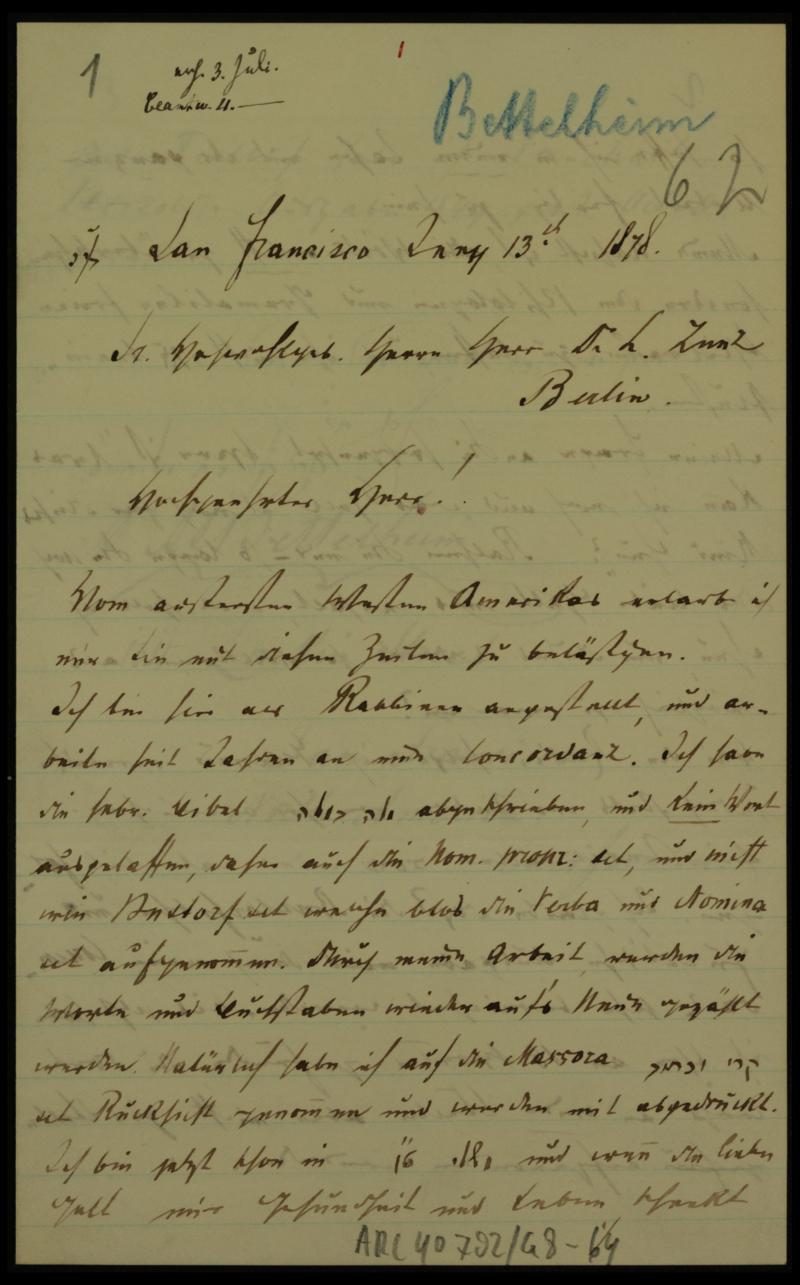 1
1
erh. 3. Juli.
beantw. 11.
Bettelheim
62
San Francisco Juny 13th 1878.
Sr. Hochwohlgeb. Herrn Herr Dr L. Zunz
Berlin.
Hochgeehrter Herr!
Vom äussersten Westen Amerikas erlaube ich
mir Sie mit diesen Zeilen zu belästigen.
Ich bin hier als Rabbiner angestellt, und ar-
beite seit Jahren an einer Concordanz. Ich habe
die hebr. Bibel מלה במלה abgeschrieben, und kein Wort
ausgelassen, daher auch die Nom. propr: etc, und nicht
wie Buxtorf etc welche blos die Verba und Nomina
etc aufgenommen. Durch meine Arbeit werden die
Worte und Buchstaben wieder auf's Neue gezählt
werden. Natürlich habe ich auf die Massora קרי וכתיב
etc Rücksicht genommen und werden mit abgedruckt.
Ich bin jetzt schon in und wenn der liebe
Gott mir Gesundheit und Leben schenkt
ARC 4o 792/G8-64